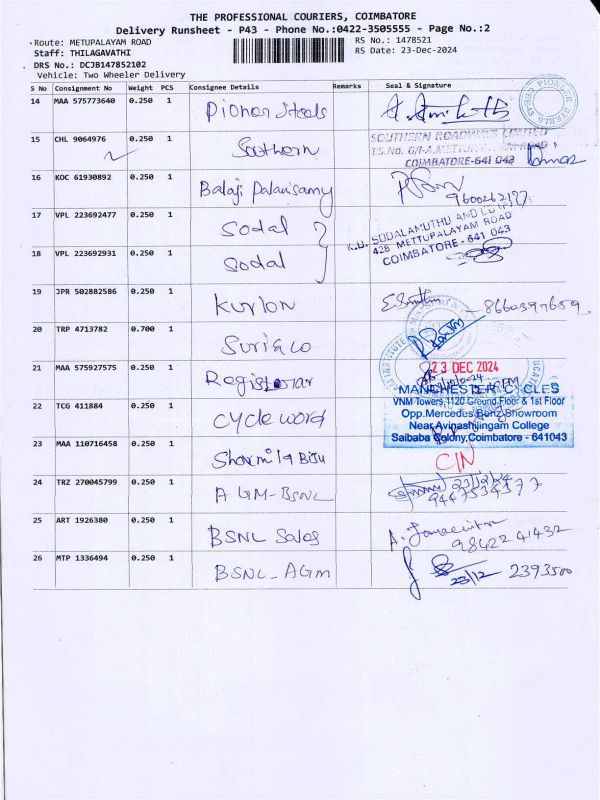 THE PROFESSIONAL COURIERS, COIMBATORE
Delivery Runsheet - P43 - Phone No.:0422-3505555 - Page No.:2
Route: METUPALAYAM ROAD
RS No.: 1478521
Staff: THILAGAVATHI
RS Date: 23-Dec-2024
DRS No.: DCJB147852102
Vehicle: Two Wheeler Delivery
S No Consignment No Weight PCS Consignee Details Remarks Seal & Signature
14 MAA 575773640 0.250 1 Pioner Steels
15 CHL 9064976 0.250 1 Southern
SOUTHERN ROADWAYS LIMITED
COIMBATORE-641 043
16 KOC 61930892 0.250 1 Balaji Palanisamy
9600262177
17 VPL 223692477 0.250 1 Sodal
428 METTUPALAYAM ROAD
COIMBATORE-641 043
18 VPL 223692931 0.250 1 Sodal
19 JPR 502882586 0.250 1 Kurlon
8660397659
20 TRP 4713782 0.700 1 Suri & co
21 MAA 575927575 0.250 1 Registerar
23 DEC 2024
22 TCG 411884 0.250 1 Cycle word
MANCHESTER CYCLES
VNM Towers,1120 Ground Floor & 1st Floor
Opp.Mercedes Benz Showroom
Near Avinashilingam College
Saibaba Colony,Coimbatore - 641043
23 MAA 110716458 0.250 1 Sharmila Biju
24 TRZ 270045799 0.250 1 AGM-BSNL
23/12/24
9447534377
25 ART 1926380 0.250 1 BSNL Sales
98422 41432
26 MTP 1336494 0.250 1 BSNL-AGM
23/12 2393500